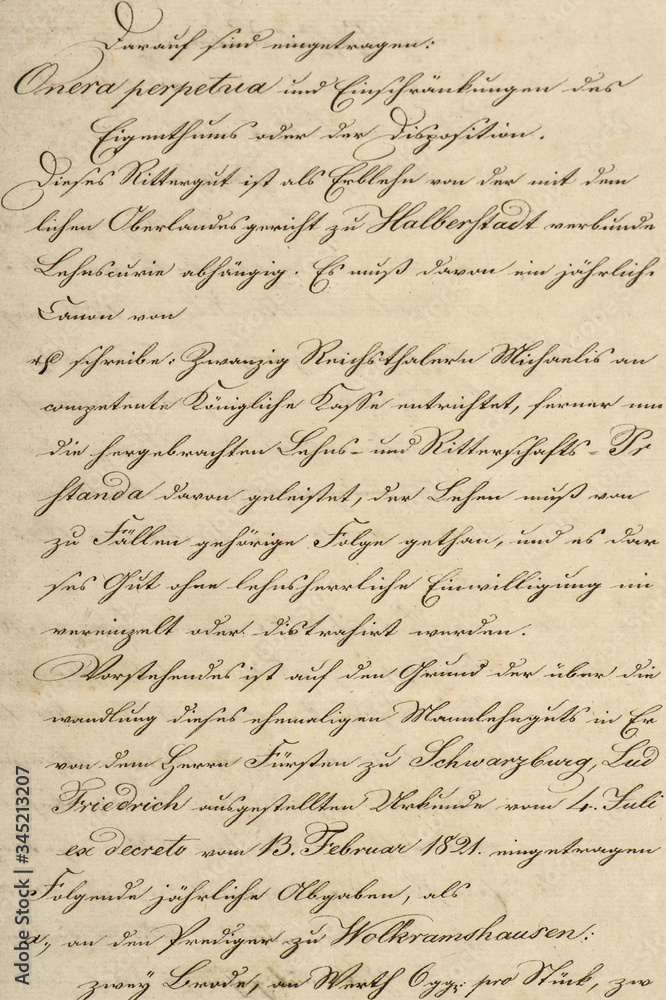 Darauf sind eingetragen:
Onera perpetua und Einschränkungen des
Eigenthums oder der Disposition.
Dieses Rittergut ist als Erblehn von der mit dem
lichen Oberlandesgericht zu Halberstadt verbunde
Lehnscurie abhängig. Es muß davon ein jährlich
Canon von
schreibe: Zwanzig Reichsthalern Michaelis an
competente Königliche Kasse entrichtet, ferner
die hergebrachten Lehns- und Ritterschafts- Pr
standa davon geleistet, der Lehen muß von
zu Fällen gehörige Folge gethan, und es dar
ses Gut ohne lehnsherrliche Einwilligung
vereinzelt oder distrahirt werden.
Vorstehendes ist auf den Grund der über die
wandlung dieses ehemaligen Mannlehnguts in Er
von dem Herrn Fürsten zu Schwarzburg, Lud
Friedrich ausgestellten Urkunde vom 4. Juli
ex decreto vom 13. Februar 1821. eingetragen
Folgende jährliche Abgaben, als
a, an den Prediger zu Wolkramshausen:
zwey Brode, an Werth 6 ggr: pro Stück, zw
Adobe Stock | #345213207
Adobe Stock